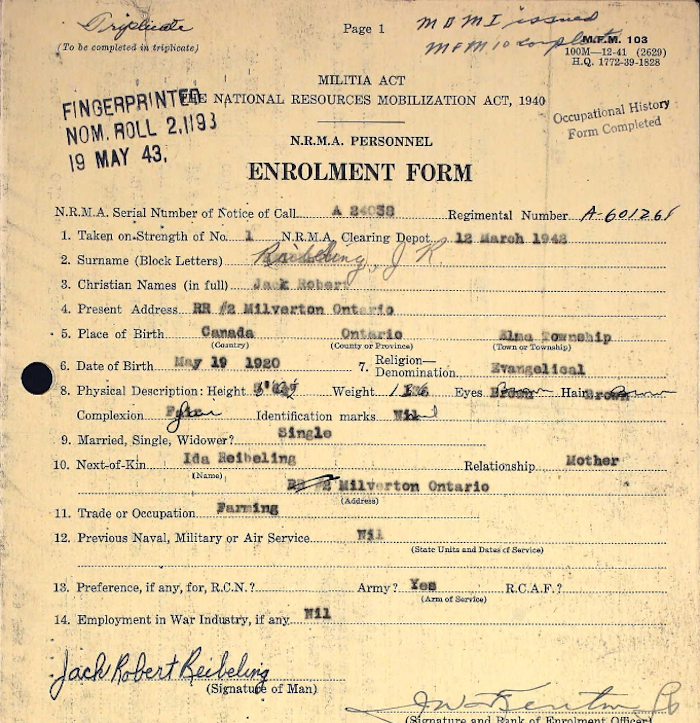 Triplicate
(To be completed in triplicate)
Page 1
M & M I issued
M.F.M. 103
100M—12-41 (2629)
H.Q. 1772-39-1828
MILITIA ACT
THE NATIONAL RESOURCES MOBILIZATION ACT, 1940
FINGERPRINTED
NOM. ROLL 2,1193
19 MAY 43.
Occupational History
Form Completed
N.R.M.A. PERSONNEL
ENROLMENT FORM
N.R.M.A. Serial Number of Notice of Call A 24038 Regimental Number A-601261
1. Taken on Strength of No. 1 N.R.M.A. Clearing Depot 12 March 1942
2. Surname (Block Letters) Reibeling, J R
3. Christian Names (in full) Jack Robert
4. Present Address RR #2 Milverton Ontario
5. Place of Birth Canada Ontario Elma Township
(Country) (County or Province) (Town or Township)
6. Date of Birth May 19 1920 7. Religion—Denomination Evangelical
8. Physical Description: Height Weight Eyes Brown Hair Brown
Complexion Identification marks Nil
9. Married, Single, Widower? Single
10. Next-of-Kin Ida Reibeling Relationship Mother
(Name)
RR #2 Milverton Ontario
(Address)
11. Trade or Occupation Farming
12. Previous Naval, Military or Air Service Nil
(State Units and Dates of Service)
13. Preference, if any, for, R.C.N.? Army? Yes R.C.A.F.?
(Arm of Service)
14. Employment in War Industry, if any Nil
Jack Robert Reibeling
(Signature of Man)
(Signature and Rank of Enrolment Officer)